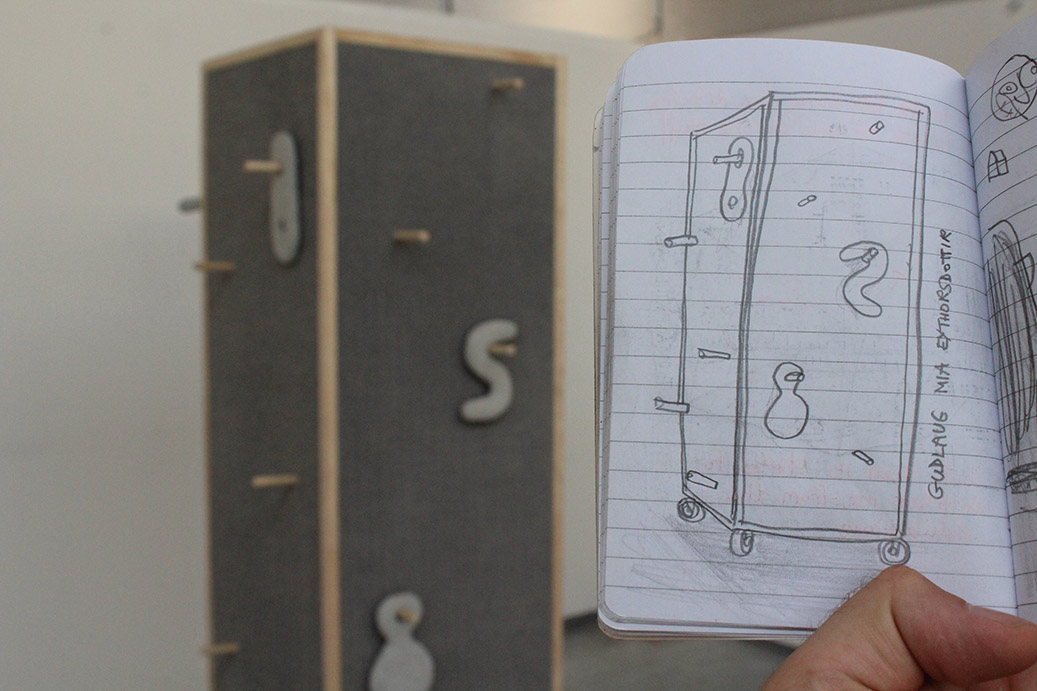 GUDLAUG MIA EYTHORSDOTTIR